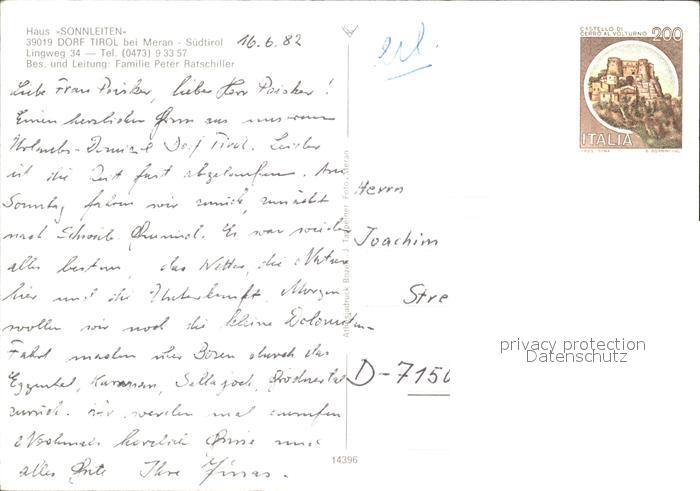 Haus «SONNLEITEN»
39019 DORF TIROL bei Meran - Südtirol
Lingweg 34 — Tel. (0473) 9 33 57
Bes. und Leitung: Familie Peter Ratschiller
16.6.82
erl.
CASTELLO DI
CERRO AL VOLTURNO 200
ITALIA
Liebe Frau Peisker, lieber Herr Peisker!
Einen herzlichen Gruss aus unserem
Urlaubs-Domizil Dorf Tirol. Leider
ist die Zeit fast abgelaufen. Am
Sonntag fahren wir zurück, zunächst
nach Schwäb. Gmünd. Es war wieder
alles bestens, das Wetter, die Natur
hier und die Unterkunft. Morgen
wollen wir noch die kleine Dolomiten-
Fahrt machen über Bozen durch das
Eggental, Karersee, Sellajoch, Grödnertal
zurück. Wir werden mal anrufen
Nochmals herzlich Grüsse und
alles Gute Ihre
Herrn
Joachim
Stre
D-7150
14396
privacy protection
Datenschutz